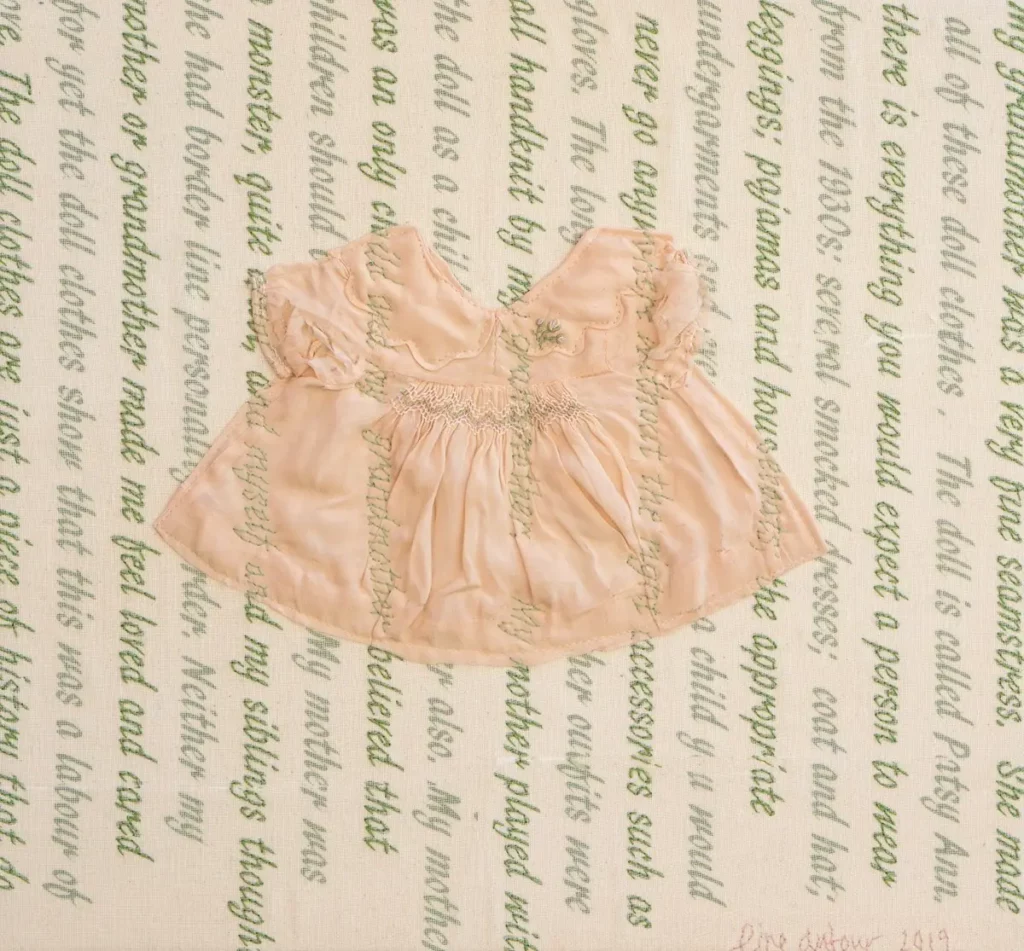 my grandmother was a very fine seamstress. She made
all of these doll clothes . The doll is called Patsy Ann.
there is everything you would expect a person to wear
from the 1930s; several smocked dresses; coat and hat;
leggings; pyjamas and the appropriate
undergarments a child y u would
never go without the right accessories such as
gloves. The long her oufits were
all handknit by my My mother played wit
the doll as a chil r also. My mothe
was an only child and grandmother believed that
children should My mother was
monster, quite and myself and my siblings though
he had border line personality disorder. Neither my
mother or grandmother made me feel loved and cared
for yet the doll clothes show that this was a labour of
ove The doll clothes are just a piece of history that do
Line dufour 2019